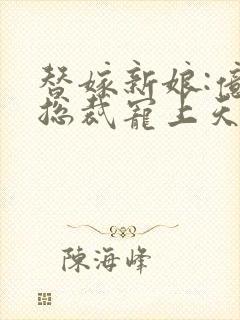 替嫁新娘:億
總裁寵上天
陳海峰